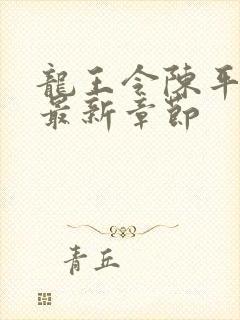 龍王令陳平
最新章節
青丘